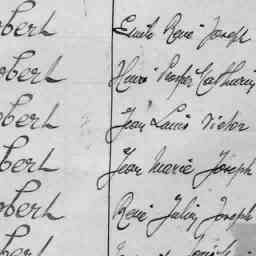 obert Emile René Joseph
obert Henri Prosper Mathurin
obert Jean Louis Victor
obert Jean Marie Joseph
obert René Julien Joseph
obert